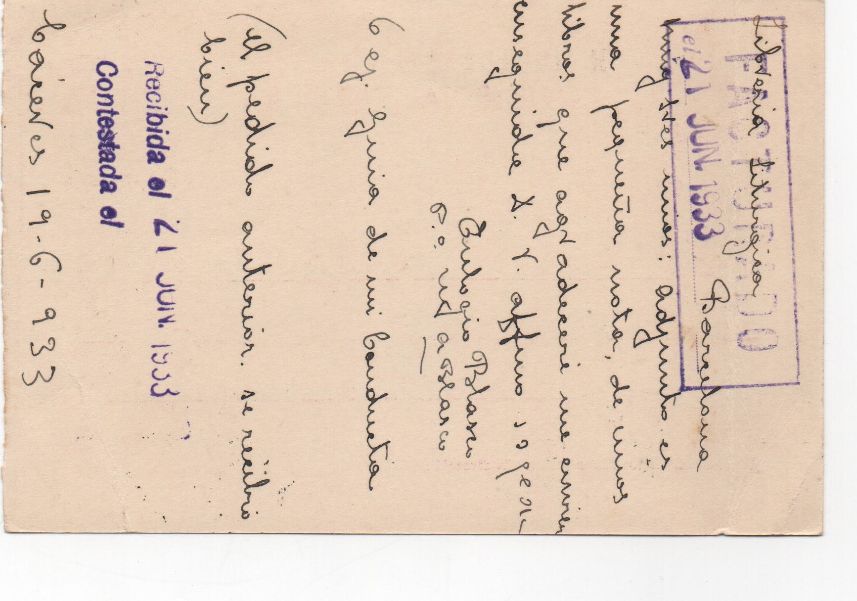 Librería Liturgica
Barcelona
FACTURADO
el 21 JUN. 1933
muy Sres mios: adjunto es
una pequeña nota, de unos
libros que agradeceré me envien
enseguida affmo
Eulogio Blasco
P.o Blasco
6 ej. Guia de mi Conducta
(el pedido anterior. se recibio
bien)
Recibida el 21 JUN. 1933
Contestada el
Cáceres 19-6-933